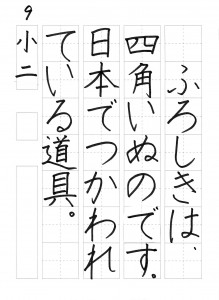 ふろしきは、
四角いぬのです。
日本でつかわれ
ている道具。
9
小二